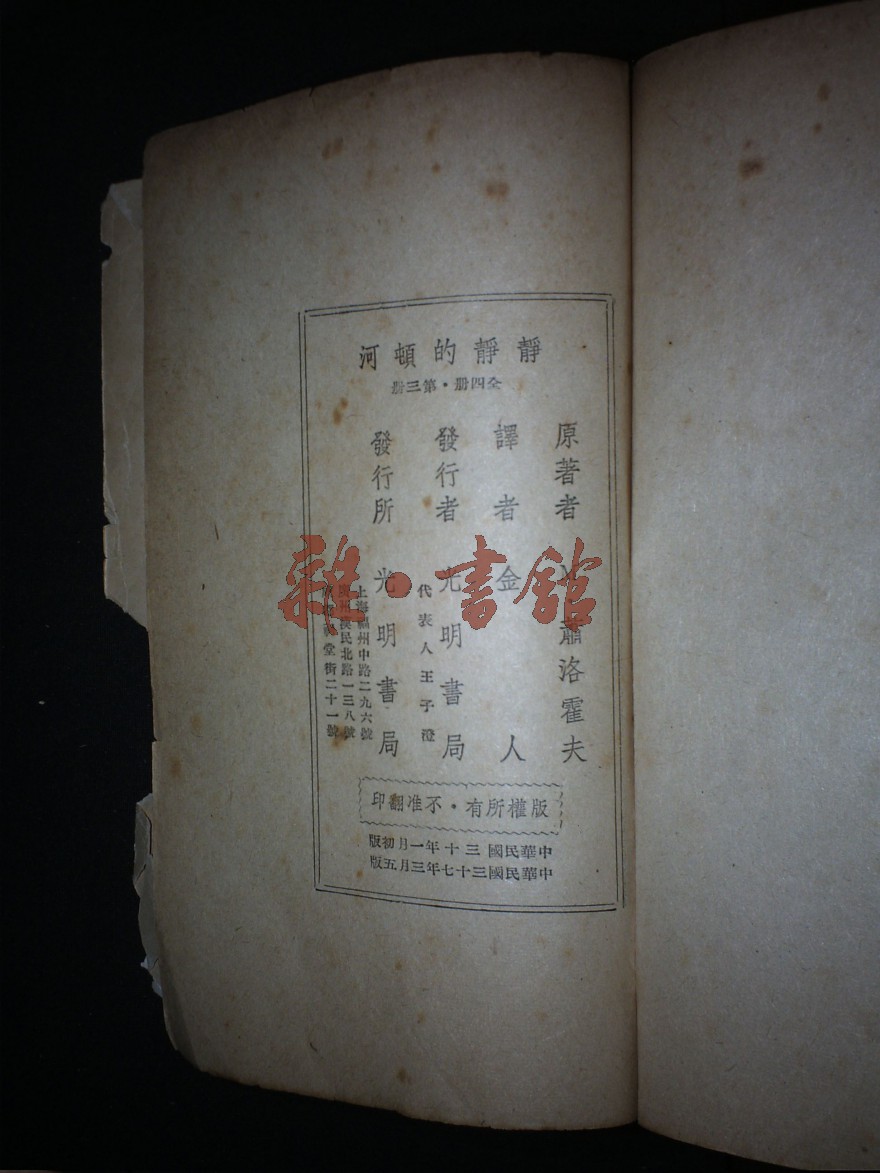 靜靜的頓河
全四册・第三册
原著者 蕭洛霍夫
譯者 金人
發行者 光明書局
代表人王子澄
發行所 光明書局
上海福州中路二九六號
廣州漢民北路一三八號
堂街二十一號
版權所有・不准翻印
中華民國三十年一月初版
中華民國三十七年三月五版
雜・書館